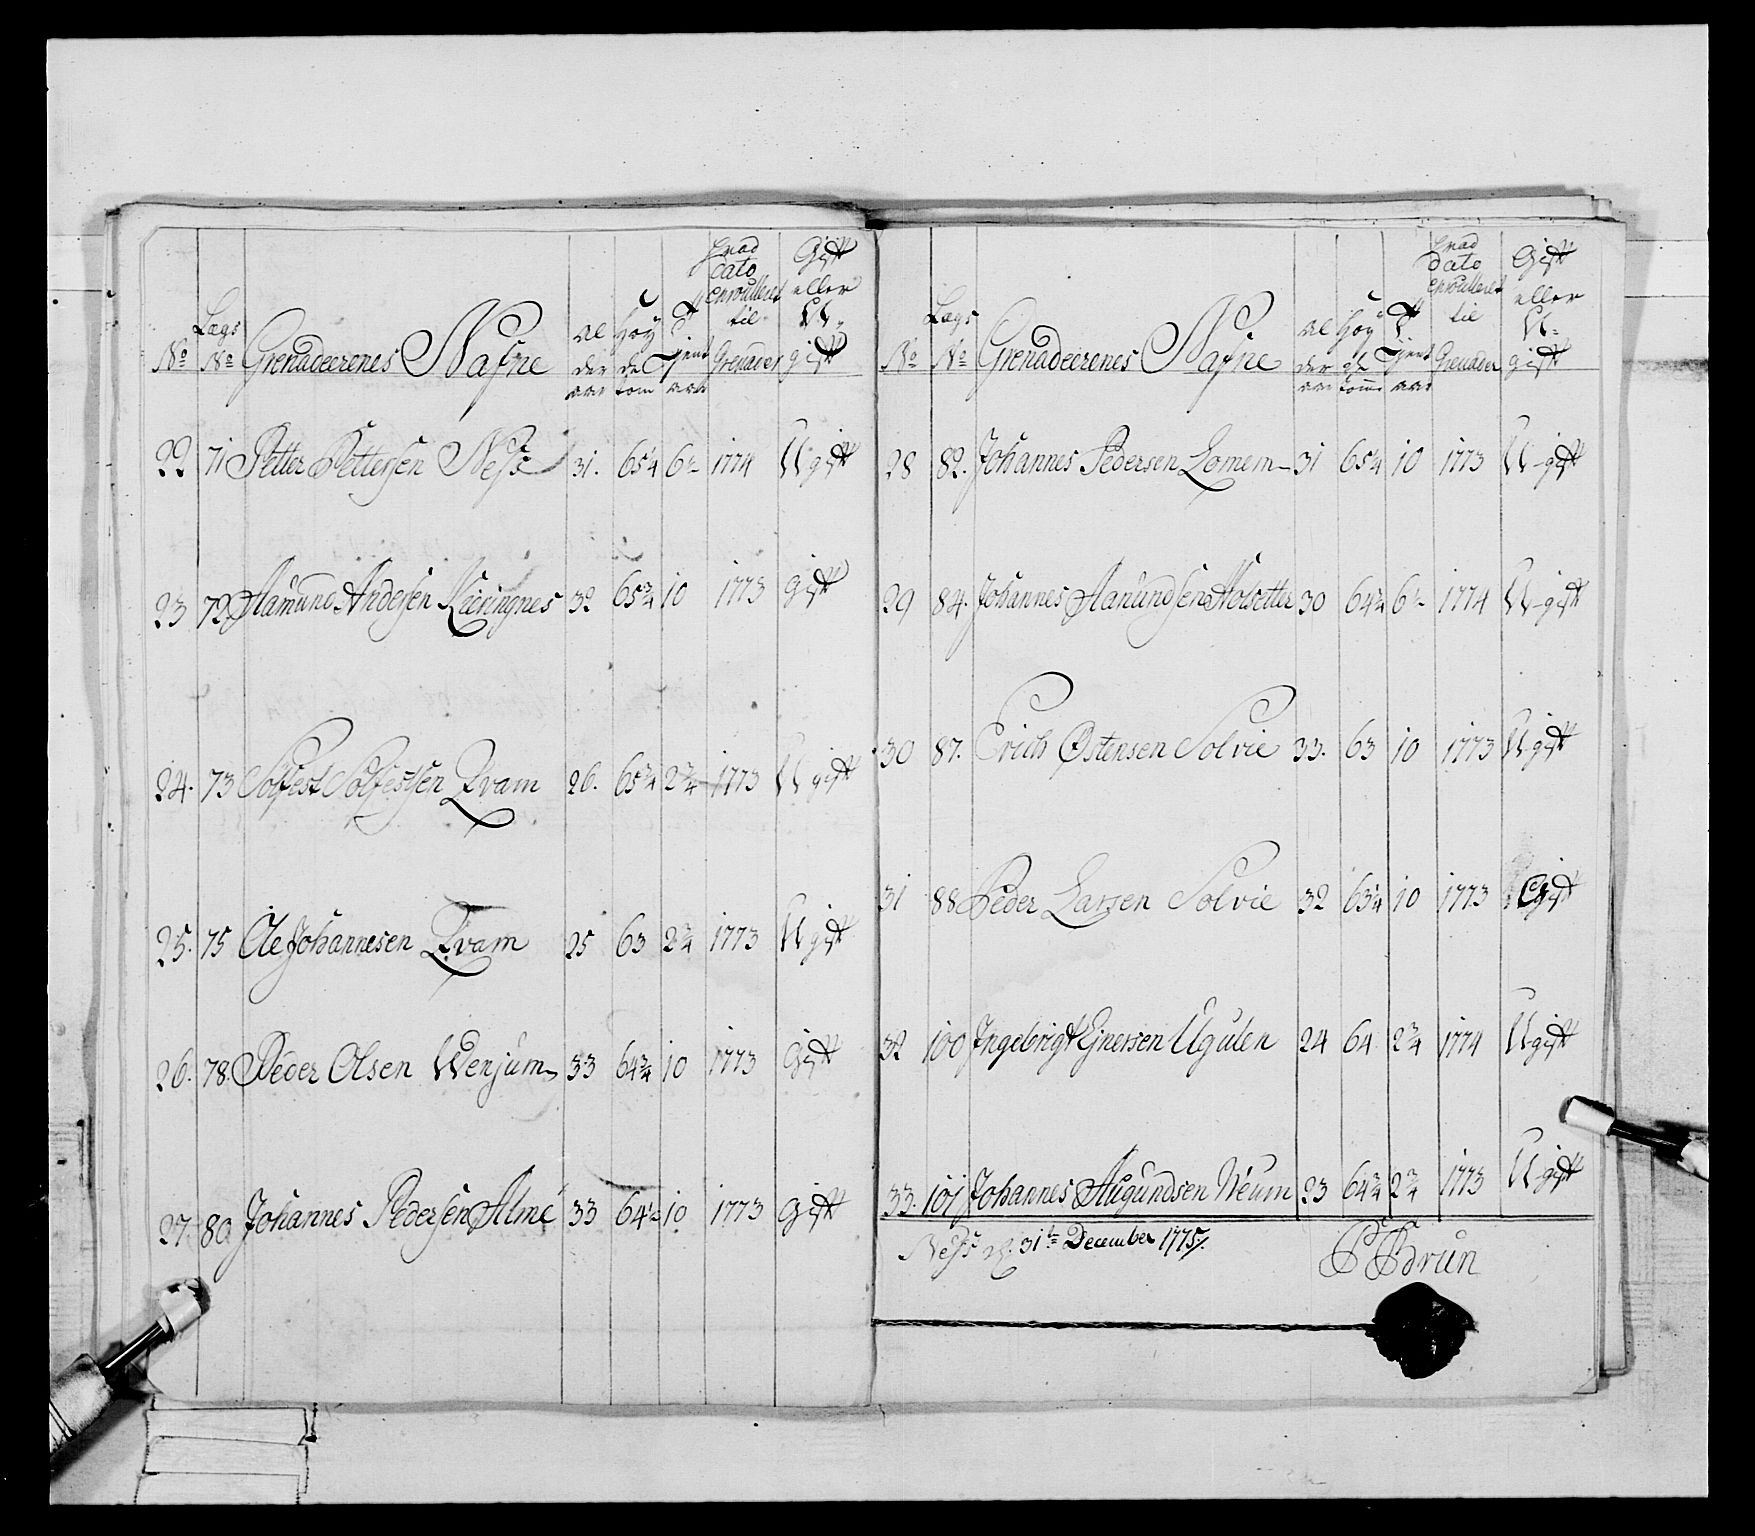 No Lægs No Grenadeerenes Nafne Alder aar Høyde tom Tjent aar hvad dato enroulleret til Grenader Gift eller U-gift
22 71 Petter Pettersen Ness 31. 65¼ 6½ 1774 Ugift
23 72 Aamund Andersen Kieringnes 32 65¾ 10 1773 gift
24. 73 Solfest Solfestsen Qvam 26. 65¾ 2¾ 1773 Ugift
25. 75 Ole Johannesen Qvam 25 63 2¾ 1773 Ugift
26. 78. Peder Olsen Wenjum 33 64¾ 10 1773 Gift
27. 80. Johannes Pedersen Alme 33 64½ 10 1773 Gift
No Lægs No Grenadeerenes Nafne Alder aar Høyde tomme Tjent aar hvad dato enroulleret til Grenader Gift eller U-gift
28 82. Johannes Pedersen Lomem 31 65¼ 10 1773 U-gift
29 84. Johannes Aamundsen Holsetter 30 64¾ 6½ 1774 U-gift
30 87. Erich Østensen Solvie 33. 63 10 1773 Ugift
31 88 Peder Larsen Solvie 32 63¼ 10 1773 Gift
32 100 Ingebrigt Ejnersen Ugulen 24 64 2¾ 1774 U-gift
33. 101 Johannes Augundsen Neum 23 64¾ 2¾ 1773 U-gift
Ness d. 31te December 1775/.
P Brun